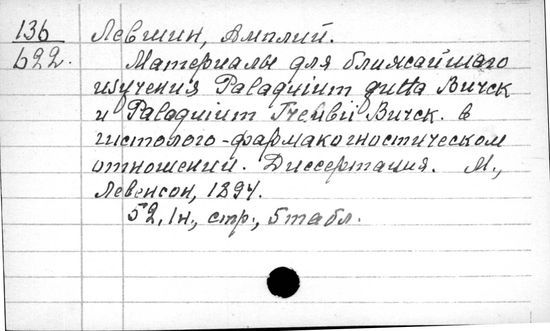 136 Левшин, Амплий.
622. Материалы для ближайшаго
изучения Palaquium gutta Вигск
и Palaquium Treubii Вигск. в
гистолого-фармакогностическом
отношении. Диссертация. М.,
Левенсон, 1894.
52, 1н., стр., 5 табл.